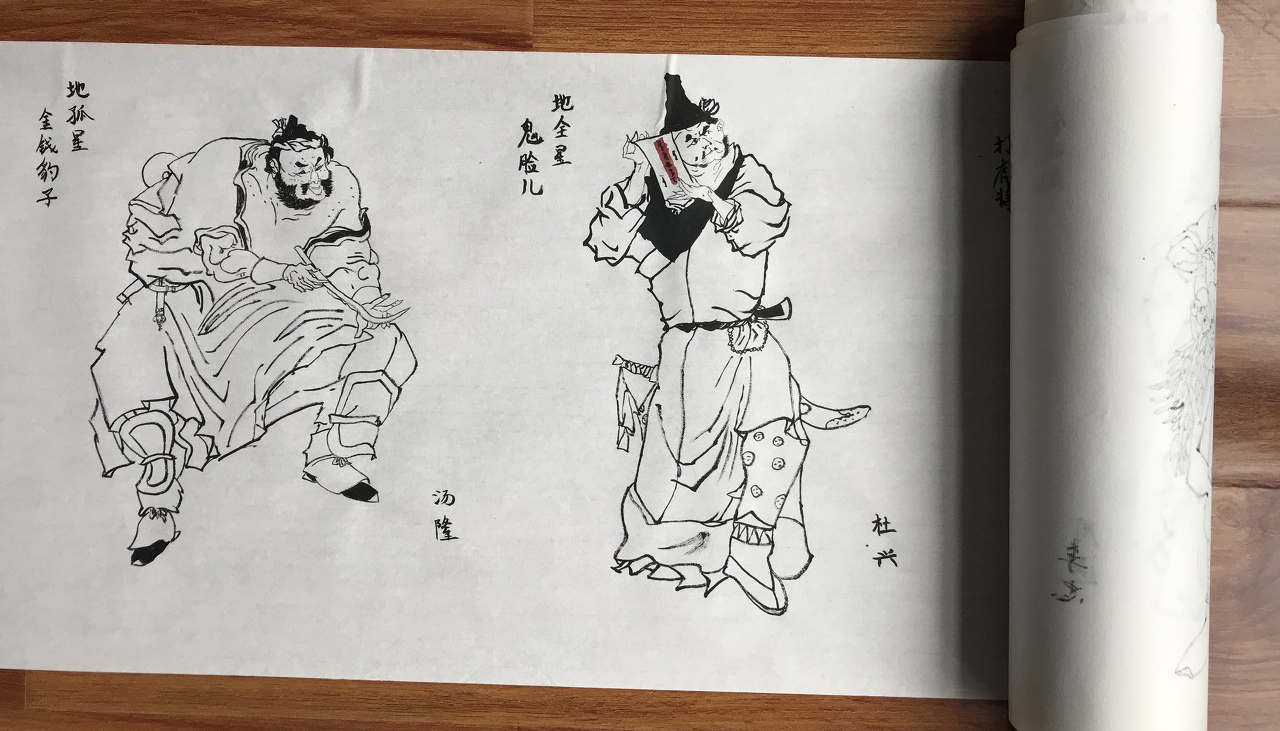 地孤星
金钱豹子
汤隆
地全星
鬼脸儿
杜兴
打虎将